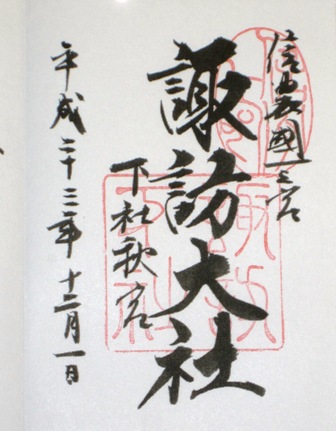 信濃國一之宮
諏訪大社
下社秋宮
平成二十二年十二月一日